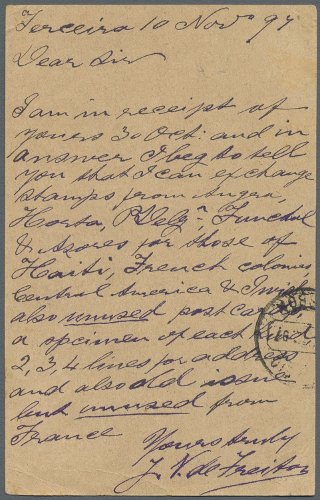 Terceira 10 Novo 97
Dear Sir
I am in receipt of
yours 30 Oct: and in
answer I beg to tell
you that I can exchange
stamps from Angra,
Horta, P. Delga, Funchal
& Azores for those of
Haiti, French colonies,
Central America &
also unused post cards
a specimen of each kind
2, 3, 4 lines for address
and also old issue
but unused from
France
Yours truly
J. V. de Freitas